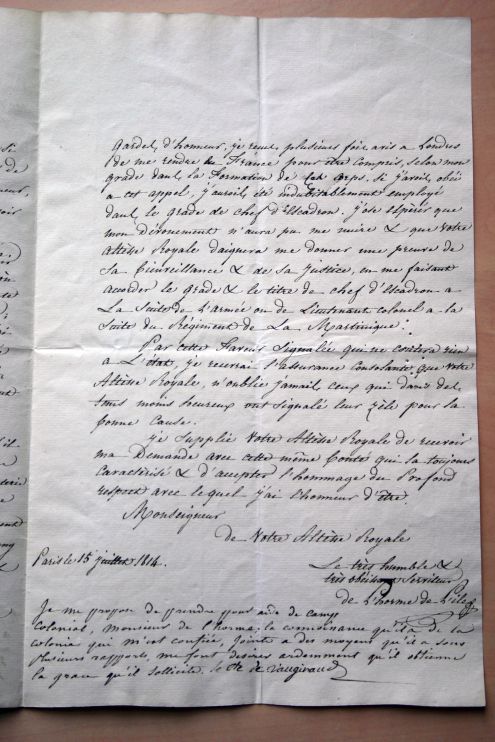 Gardes d'honneur, je reçus plusieurs fois avis a Londres
de me rendre en France pour être compris, selon mon
grade dans la formation de ces corps. Si j'avois obéi
a cet appel, j'aurois été indubitablement employé
dans le grade de chef d'Escadron. j'ose espérer que
mon dévouement n'aura pu me nuire & que Votre
Altesse Royale daignera me donner une preuve de
Sa Bienveillance & de Sa justice, en me faisant
accorder le grade & le titre de chef d'Escadron a
La Suite de L'armée ou de Lieutenant colonel a la
Suite du Régiment de La Martinique.
Par cette Faveur Signalée qui ne coûtera rien
a L'état, je recevrai l'assurance consolante que Votre
Altesse Royale, n'oublie jamais ceux qui dans des
tems moins heureux ont Signalé leur zèle pour la
bonne Cause.
je Supplie Votre Altesse Royale de recevoir
ma Demande avec cette même Bonté qui la toujours
Caractérisé & d'accepter l'hommage du Profond
respect avec lequel j'ai l'honneur d'être
Monseigneur
de Votre Altesse Royale
Paris le 15 juillet 1814.
Le très humble &
très obéissant Serviteur
de l'horme de L'isle
Je me propose de prendre pour aide de camp
colonial, Monsieur de l'horme; la connoissance qu'il a de la
colonie qui m'est confiée, jointe a des moyens qu'il a sous
plusieurs rapports, me font désirer ardemment qu'il obtienne
la grace qu'il sollicite. le Cte de Vaugiraud